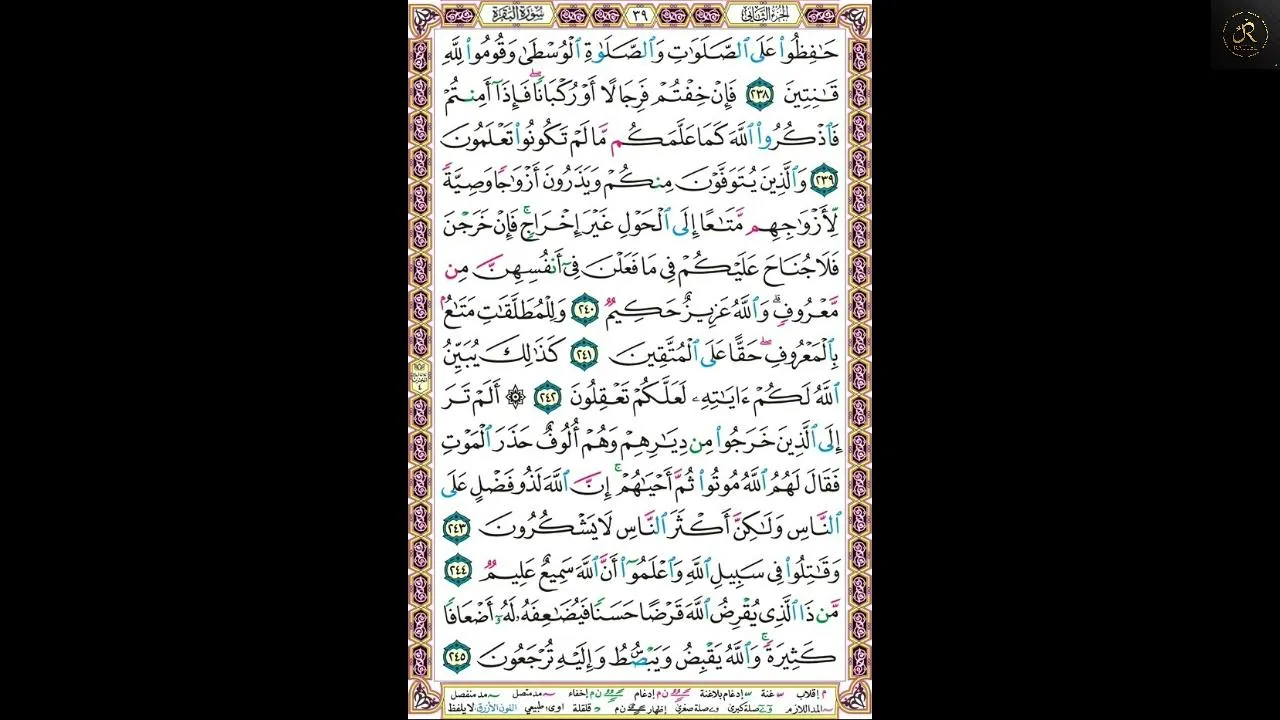 الجزء الثاني
٣٩
سورة البقرة
حَـٰفِظُوا۟ عَلَى ٱلصَّلَوَٰتِ وَٱلصَّلَوٰةِ ٱلْوُسْطَىٰ وَقُومُوا۟ لِلَّهِ
قَـٰنِتِينَ ٢٣٨ فَإِنْ خِفْتُمْ فَرِجَالًا أَوْ رُكْبَانًا ۖ فَإِذَآ أَمِنتُمْ
فَٱذْكُرُوا۟ ٱللَّهَ كَمَا عَلَّمَكُم مَّا لَمْ تَكُونُوا۟ تَعْلَمُونَ
٢٣٩ وَٱلَّذِينَ يُتَوَفَّوْنَ مِنكُمْ وَيَذَرُونَ أَزْوَٰجًا وَصِيَّةً
لِّأَزْوَٰجِهِم مَّتَـٰعًا إِلَى ٱلْحَوْلِ غَيْرَ إِخْرَاجٍ ۚ فَإِنْ خَرَجْنَ
فَلَا جُنَاحَ عَلَيْكُمْ فِى مَا فَعَلْنَ فِىٓ أَنفُسِهِنَّ مِن
مَّعْرُوفٍ ۗ وَٱللَّهُ عَزِيزٌ حَكِيمٌ ٢٤٠ وَلِلْمُطَلَّقَـٰتِ مَتَـٰعٌۢ
بِٱلْمَعْرُوفِ ۖ حَقًّا عَلَى ٱلْمُتَّقِينَ ٢٤١ كَذَٰلِكَ يُبَيِّنُ
ٱللَّهُ لَكُمْ ءَايَـٰتِهِۦ لَعَلَّكُمْ تَعْقِلُونَ ٢٤٢ ۞ أَلَمْ تَرَ
إِلَى ٱلَّذِينَ خَرَجُوا۟ مِن دِيَـٰرِهِمْ وَهُمْ أُلُوفٌ حَذَرَ ٱلْمَوْتِ
فَقَالَ لَهُمُ ٱللَّهُ مُوتُوا۟ ثُمَّ أَحْيَـٰهُمْ ۚ إِنَّ ٱللَّهَ لَذُو فَضْلٍ عَلَى
ٱلنَّاسِ وَلَـٰكِنَّ أَكْثَرَ ٱلنَّاسِ لَا يَشْكُرُونَ ٢٤٣
وَقَـٰتِلُوا۟ فِى سَبِيلِ ٱللَّهِ وَٱعْلَمُوٓا۟ أَنَّ ٱللَّهَ سَمِيعٌ عَلِيمٌ ٢٤٤
مَّن ذَا ٱلَّذِى يُقْرِضُ ٱللَّهَ قَرْضًا حَسَنًا فَيُضَـٰعِفَهُۥ لَهُۥٓ أَضْعَافًا
كَثِيرَةً ۚ وَٱللَّهُ يَقْبِضُ وَيَبْصُۜطُ وَإِلَيْهِ تُرْجَعُونَ ٢٤٥
م إقلاب ~ غنة ~ إدغام بلاغنة ن م إدغام ن م إخفاء ~ مد متصل ~ مد منفصل
~ المد اللازم صلة كبرى صلة صغرى إظهار ن م قلقلة اوى طبيعي اللون الأزرق لا يلفظ